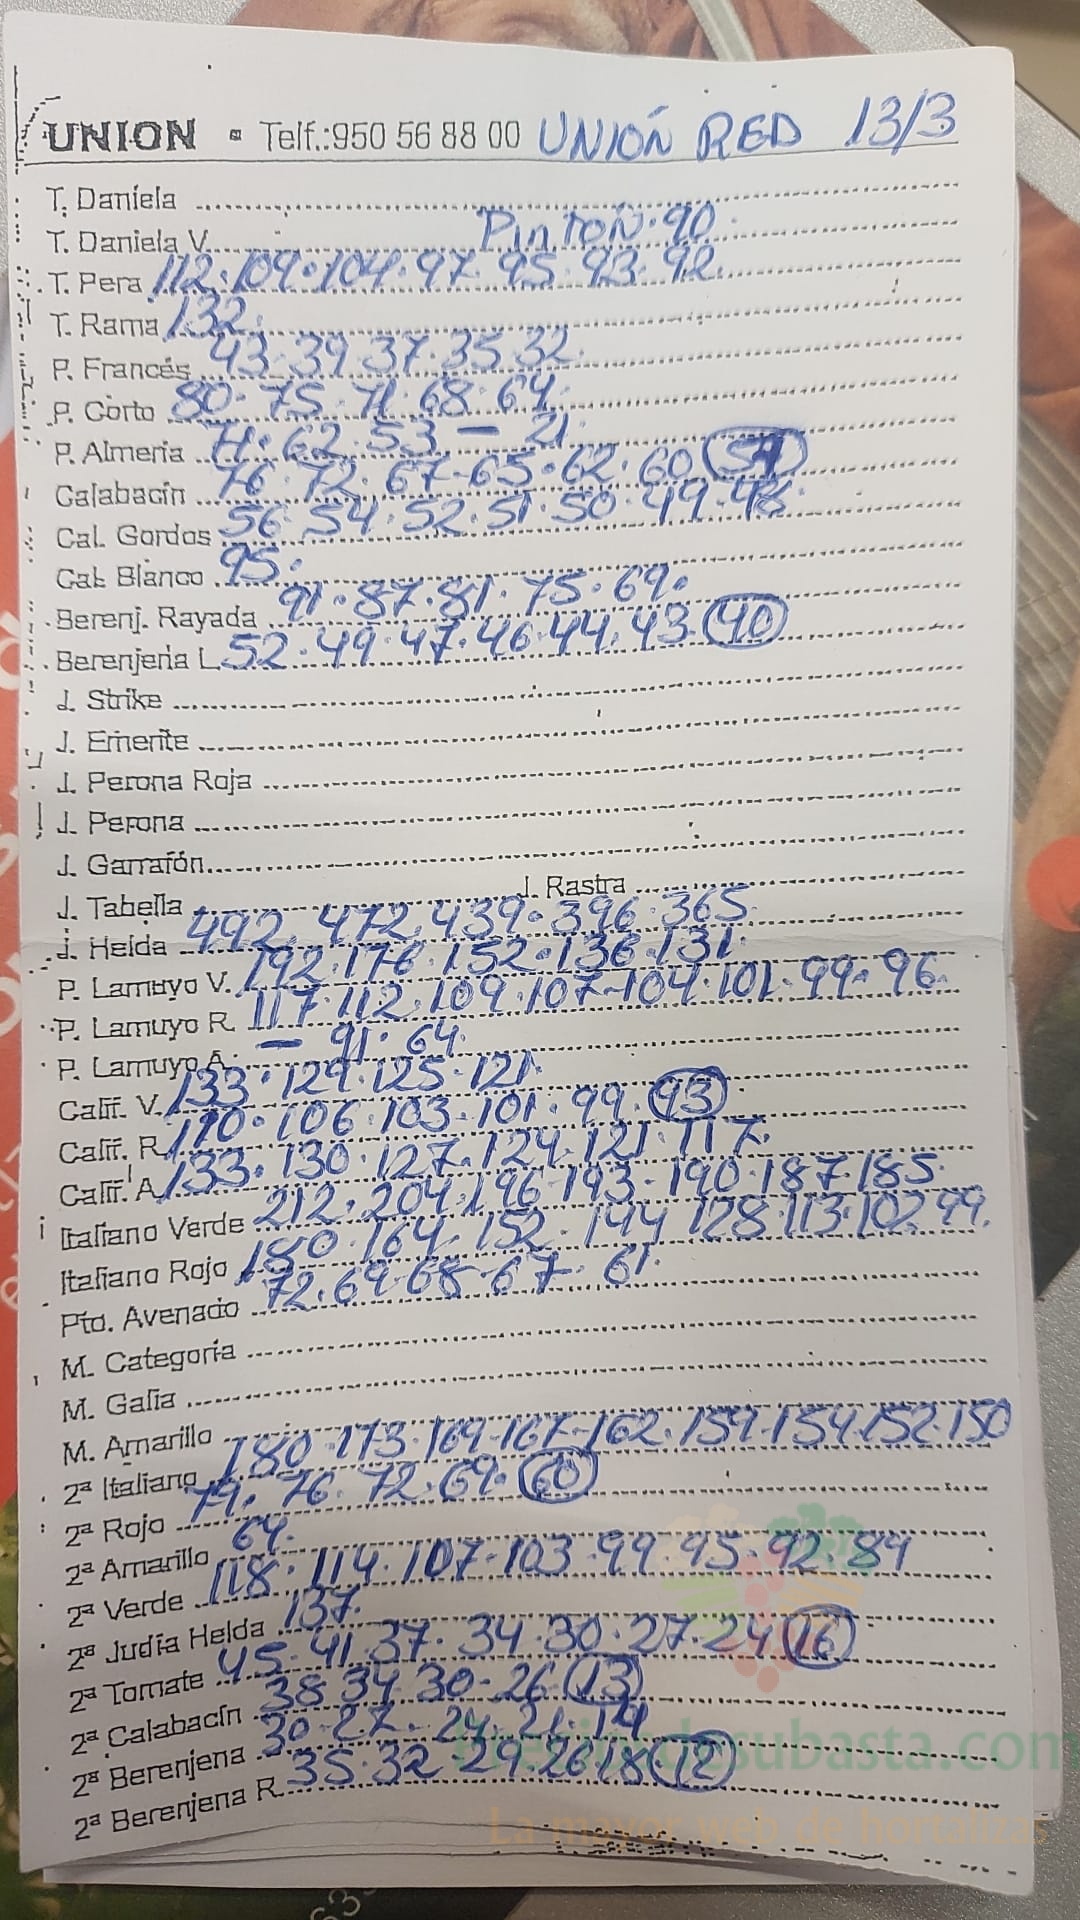 UNION • Telf.:950 56 88 00 UNIÓN RED 13/3
T. Daniela
T. Daniela V. Pinton·90
T. Pera 112·109·104·97·95·93·92
T. Rama 132
P. Francés 43·39·37·35·32
P. Corto 80·75·71·68·64
P. Almeria 71·62·53 — 21
Calabacín 76·72·67-65·62·60
Cal. Gordos 56·54·52·51·50·49·48
Cal. Blanco 95
Berenj. Rayada 91·87·81·75·69
Berenjena L. 52·49·47·46·44·43 40
J. Strike
J. Emerite
J. Perona Roja
J. Perona
J. Garrafón
J. Tabella J. Rastra
J. Helda 492·472·439·396·365
P. Lamuyo V. 192·176·152·136·131
P. Lamuyo R. 117·112·109·107-104·101·99·96
P. Lamuyo A. — 91·64
Calif. V. 133·129·125·121
Calif. R. 110·106·103·101·99 93
Calif. A. 133·130·127·124·121·117
Italiano Verde 212·204·196·193-190·187·185
Italiano Rojo 180·164·152·144 128·113·102·99
Pto. Avenado 72·69·68·67·61
M. Categoria
M. Galia
M. Amarillo
2ª Italiano 180·173·169-167-162·159·154·152·150
2ª Rojo 79·76·72·69 60
2ª Amarillo 64
2ª Verde 118·114·107-103·99·95·92·89
2ª Judía Helda 137
2ª Tomate 45·41·37·34·30·27·24 16
2ª Calabacín 38·34·30·26 13
2ª Berenjena 30·27·24·21·14
2ª Berenjena R. 35·32·29·26·18 12
subasta.com
La mayor web de hortalizas